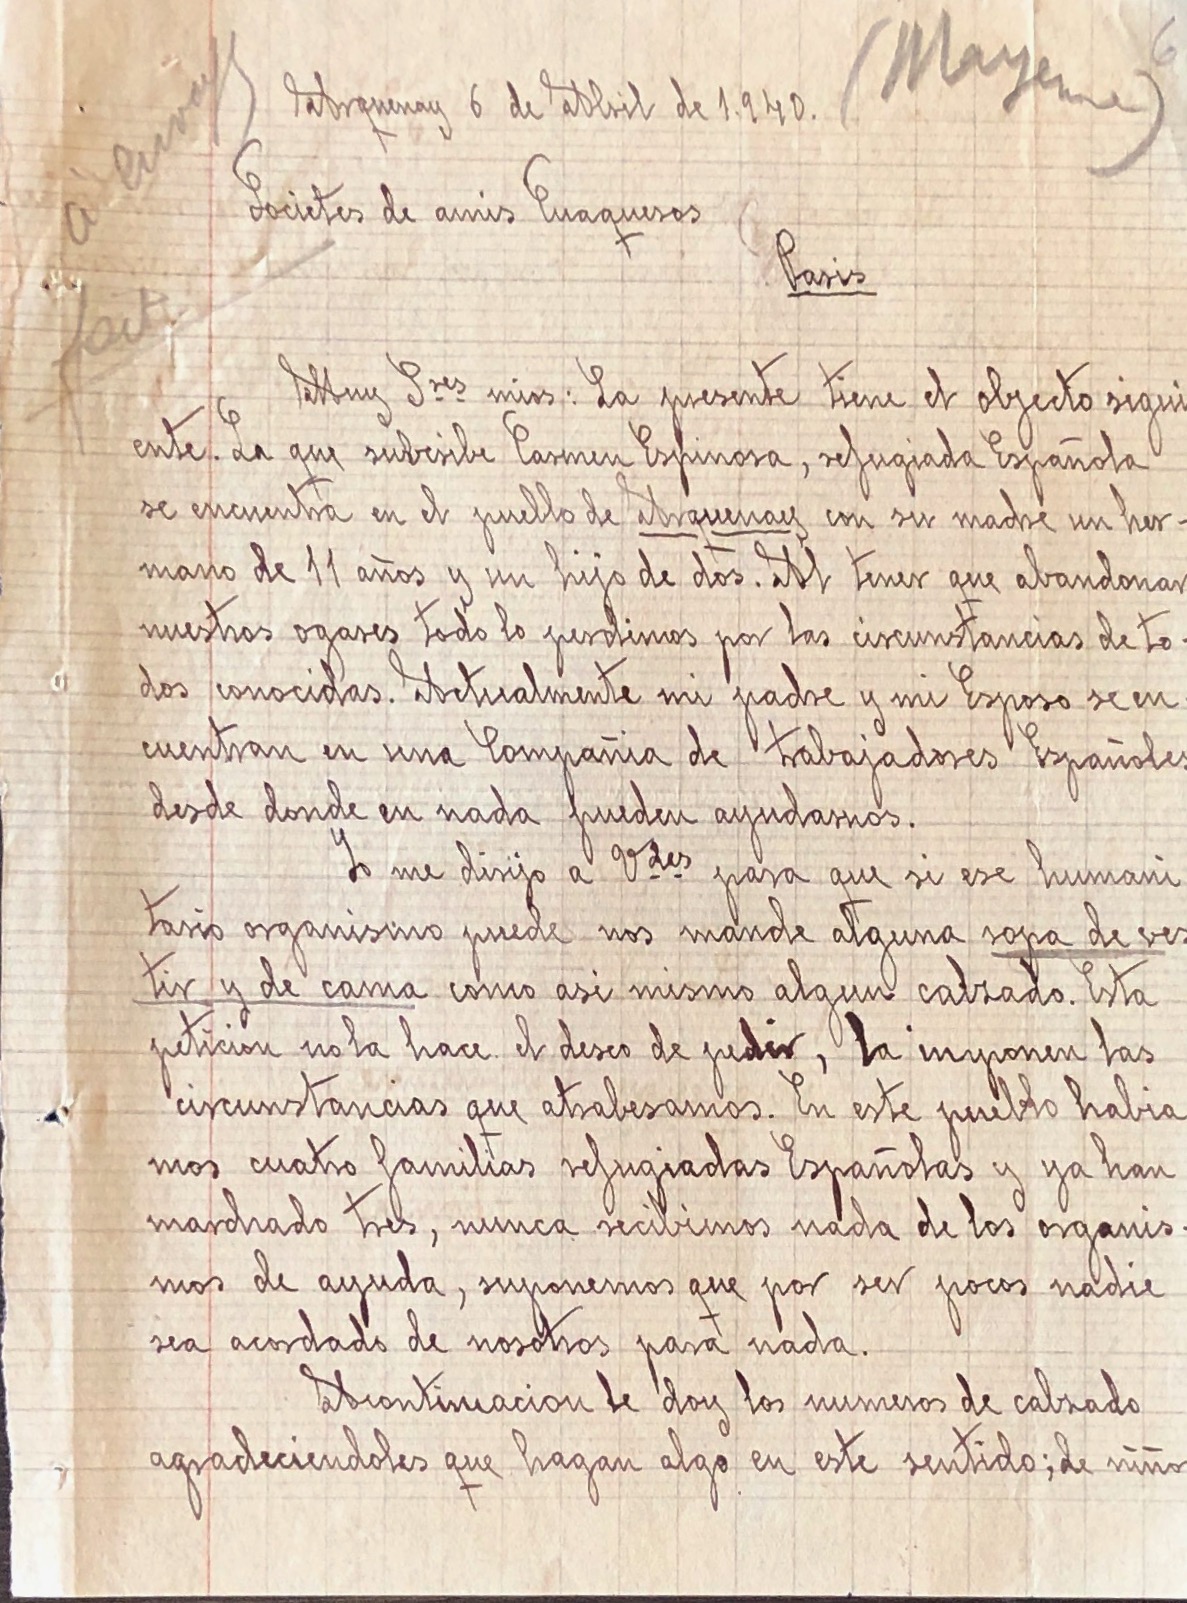 (Mayenne) 6
Arquenay 6 de Abril de 1.940.
à envoyer
Societes de amis Cuaqueros
Paris
Muy Sres mios: La presente tiene el objecto sigui
ente. La que subcribe Carmen Espinosa, refugiada Española
se encuentra en el pueblo de Arquenay con su madre un her-
mano de 11 años y un hijo de dos. Al tener que abandonar
nuestros ogares todo lo perdimos por las circunstancias de to-
dos conocidas. Actualmente mi padre y mi Esposo se en-
cuentran en una Compañia de trabajadores Españoles
desde donde en nada pueden ayudarnos.
Yo me dirijo a Vdes para que si ese humani
tario organismo puede nos mande alguna ropa de ves
tir y de cama como asi mismo algun calzado. Esta
peticion no la hace el deseo de pedir, la imponen las
circunstancias que atrabesamos. En este pueblo habia
mos cuatro familias refugiadas Españolas y ya han
marchado tres, nunca recibimos nada de los organis-
mos de ayuda, suponemos que por ser pocos nadie
sea acordado de nosotros para nada.
Acontinuacion le doy los numeros de calzado
agradeciendoles que hagan algo en este sentido; de niños